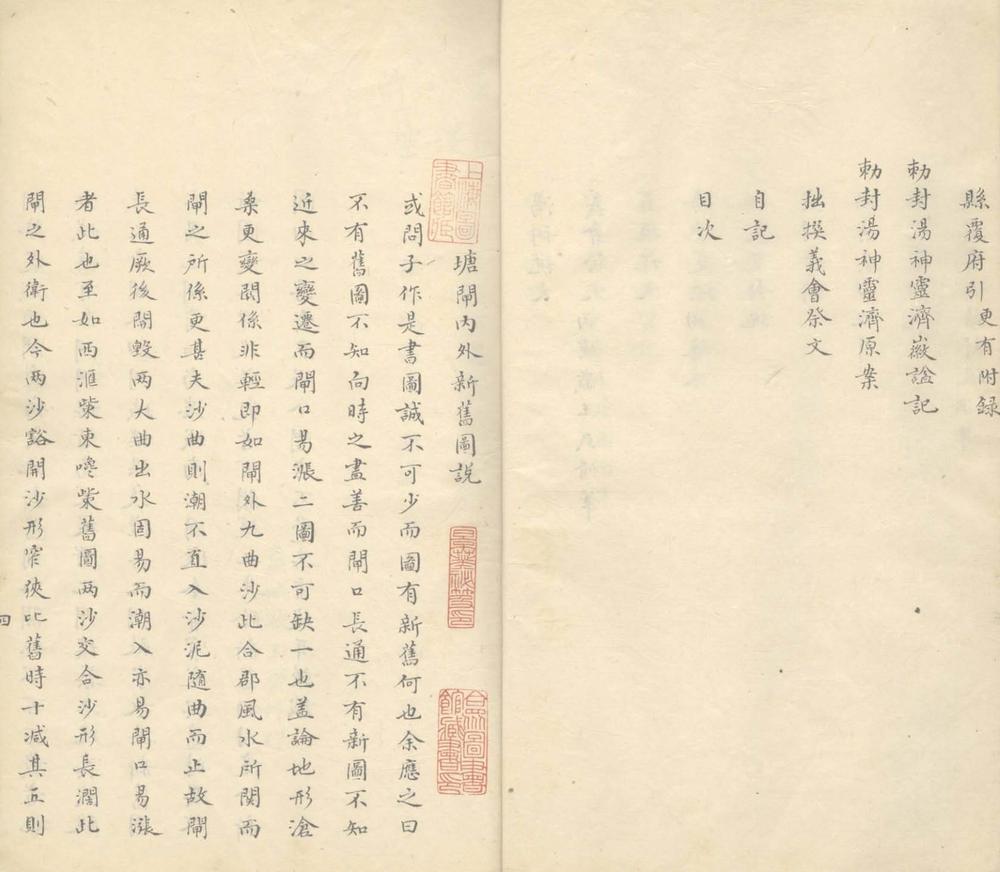 縣覆府引更有附録
勅封湯神靈濟嶽謚記
勅封湯神靈濟原案
拙撰義會祭文
自記
目次
塘閘內外新舊圖説
或問子作是書圖誠不可少而圖有新舊何也余應之曰
不有舊圖不知向時之盡善而閘口長通不有新圖不知
近來之變遷而閘口易漲二圖不可缺一也盖論地形滄
桑更變関係非輕即如閘外九曲沙此合郡風水所関而
閘之所係更甚夫沙曲則潮不直入沙泥隨曲而止故閘
長通厥後開毀兩大曲出水固易而潮入亦易閘口易漲
者此也至如西滙觜東嚵觜舊圖两沙交合沙形長濶此
閘之外衛也今两沙豁開沙形窄狹比舊時十减其五則
四
上海圖書館印
合眾圖書館藏書印